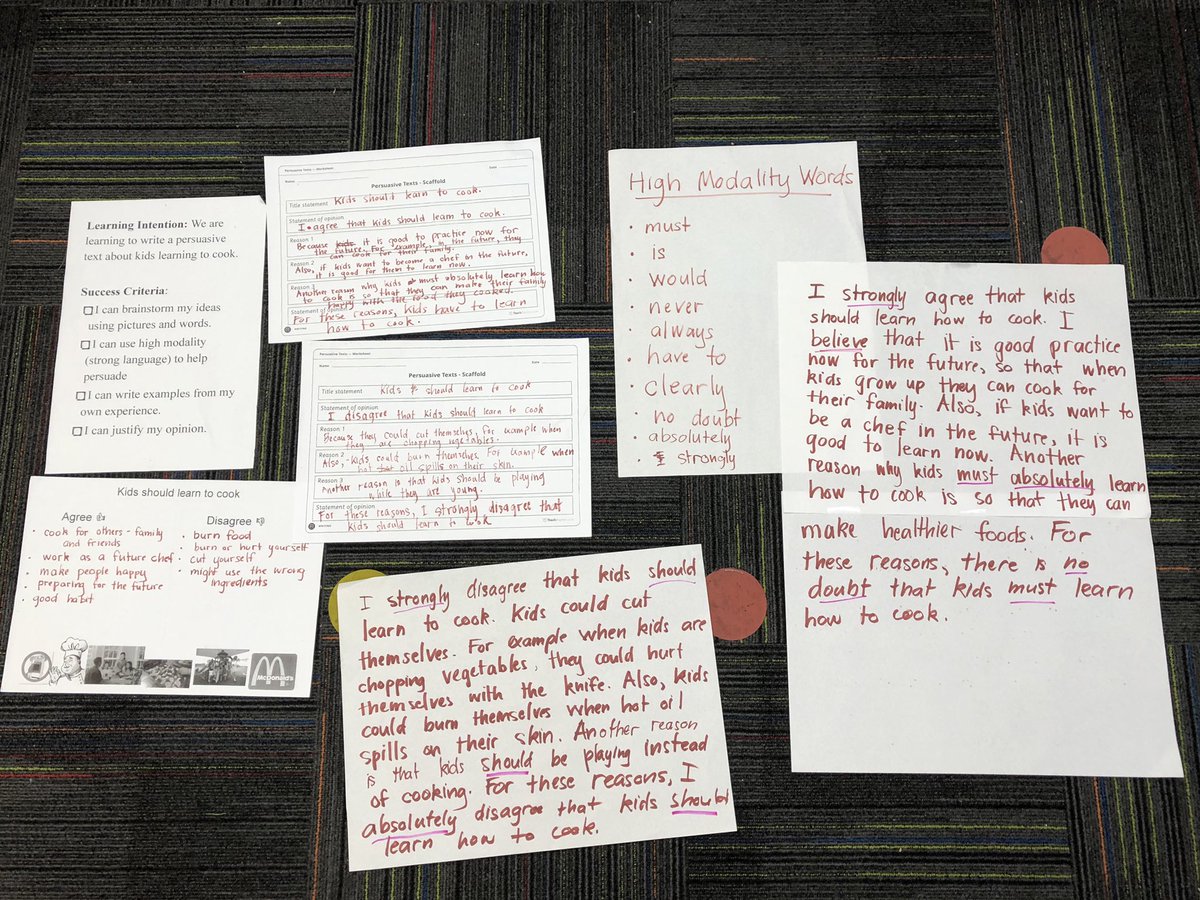 Learning Intention: We are
learning to write a persuasive
text about kids learning to cook.
Success Criteria:
I can brainstorm my ideas
using pictures and words.
I can use high modality
(strong language) to help
persuade
I can write examples from my
own experience.
I can justify my opinion.
Persuasive Texts — Worksheet
Name
Date
Persuasive Texts - Scaffold
Title statement Kids should learn to cook.
Statement of opinion
I agree that kids should learn to cook.
Reason 1
Because it is good to practice now for
the future. For example, in the future, they
can cook for their family.
Reason 2
Also, if kids want to become a chef in the future,
it is good for them to learn now.
Reason 3
Another reason why kids must absolutely learn how
to cook is so that they can make their family
happy with the food they cooked.
Statement of opinion
For these reasons, kids have to learn
how to cook.
Persuasive Texts — Worksheet
Name
Date
Persuasive Texts - Scaffold
Title statement Kids should learn to cook
Statement of opinion
I disagree that kids should learn to cook
Reason 1
Because they could cut themselves, for example when
they are chopping vegetables.
Reason 2
Also, kids could burn themselves. For example when
hot oil spills on their skin.
Reason 3
Another reason is that kids should be playing
while they are young.
Statement of opinion
For these reasons, I strongly disagree that
kids should learn to cook
Kids should learn to cook
Agree
cook for others - family
and friends
• work as a future chef
• make people happy
• preparing for the future
• good habit
Disagree
• burn food
• burn or hurt yourself
• cut yourself
• might use the wrong
ingredients
McDonald's
High Modality Words
• must
• is
• would
• never
• always
• have to
• clearly
• no doubt
• absolutely
• strongly
I strongly disagree that kids should
learn to cook. Kids could cut
themselves. For example when kids are
chopping vegetables, they could hurt
themselves with the knife. Also, kids
could burn themselves when hot oil
spills on their skin. Another reason
is that kids should be playing instead
of cooking. For these reasons, I
absolutely disagree that kids should
learn how to cook.
I strongly agree that kids
should learn how to cook. I
believe that it is good practice
now for the future, so that when
kids grow up they can cook for
their family. Also, if kids want to
be a chef in the future, it is
good to learn now. Another
reason why kids must absolutely learn
how to cook is so that they can
make healthier foods. For
these reasons, there is no
doubt that kids must learn
how to cook.